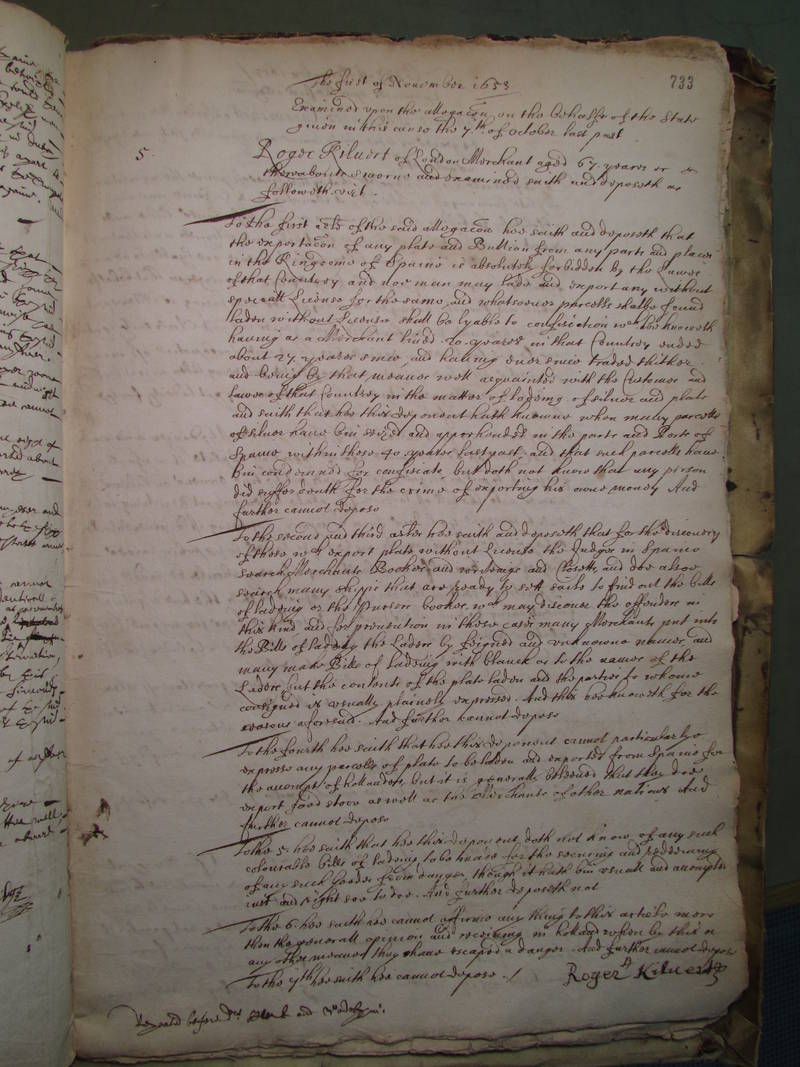 733
The first of November 1653
Examined upon the allegacon on the behalfe of the State
given in this cause the 7th of October last past
5
Roger Kilvert of London Merchant aged 67 yeares or
thereabouts sworne and examined saith and deposeth as
followeth vizt.
To the first arle of the said allegacon hee saith and deposeth that
the exportacon of any plate and Bullion from any parts and places
in the Kingdome of Spaine is absolutely forbidden by the Lawes
of that Countrey and noe man may lade and export any without
speciall License for the same, and whatsoever parcells shalbe found
laden without License shall be lyable to confiscation wch hee knoweth
having as a Merchant lived 20 yeares in that Countrey ended
about 27 yeares since, and having ever since traded thither
and being by that meanes well acquainted with the Customes and
Lawes of that Countrey in the matter of lading of silver and plate
and saith that hee this deponent hath knowne when many parcells
of silver have bin seized and apprehended in the parts and Ports of
Spaine within these 40 yeares last past, and that such parcells have
bin condemned for confiscate, but doth not know that any person
did suffer death for the crime of exporting his owne money And
further cannot depose
To the second and third arles hee saith and deposeth that for the discovery
of those wch export plate without License the Judges in Spaine
search Merchants Bookes and writings and Closetts, and doe allsoe
search many shipps that are ready to sett saile to find out the bills
of lading or the Pursers bookes wch may discover the offenders in
this kind and for prevention in these cases many Merchants put into
the Bills of lading the Laders by feigned and unknowne names, and
many make Bills of lading with blanck as to the names of the
Laders, but the contents of the plate laden and the parties to whome
consigned is usually plainely expressed. And this hee knoweth for the
reasons aforesaid. And further cannot depose
To the fourth hee saith that hee this deponent cannot particularly
expresse any parcells of plate to be laden and exported from Spaine for
the accompt of Hollanders, but it is generally beleeved that they doe
export good store as well as the Merchants of other nations And
further cannot depose
To the 5. hee saith that hee this deponent doth not know of any such
colourable bills of lading to be made for the securing and redeeming
of any such goods from danger, though it hath bin usuall and accompted
just and right soe to doe. And further deposeth not
To the 6. hee saith hee cannot affirme any thing to this article more
then the generall opinion and receiving in Holland when by this or
any other meanes they have escaped a danger. And further cannot depose
To the 7th hee saith hee cannot depose ./
Roger Kilvert
Repeated before Dr Clerk and